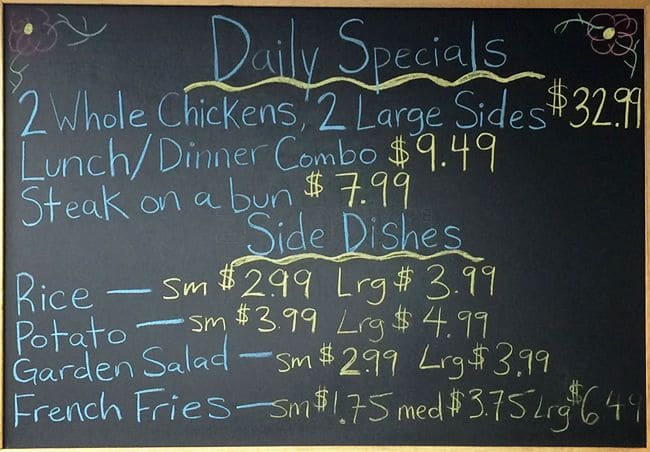 Daily Specials
2 Whole Chickens, 2 Large Sides $32.99
Lunch/Dinner Combo $9.49
Steak on a bun $7.99
Side Dishes
Rice — sm $2.99 Lrg $3.99
Potato — sm $3.99 Lrg $4.99
Garden Salad — sm $2.99 Lrg $3.99
French Fries — sm $1.75 med $3.75 Lrg $6.49